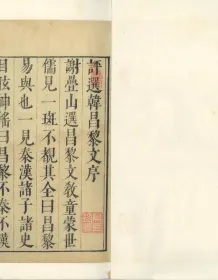 評選韓昌黎文序
謝疊山選昌黎文教童蒙世
儒見一斑不覩其全曰昌黎
易與也一見秦漢諸子諸史
目眩神搖曰昌黎不秦不漢